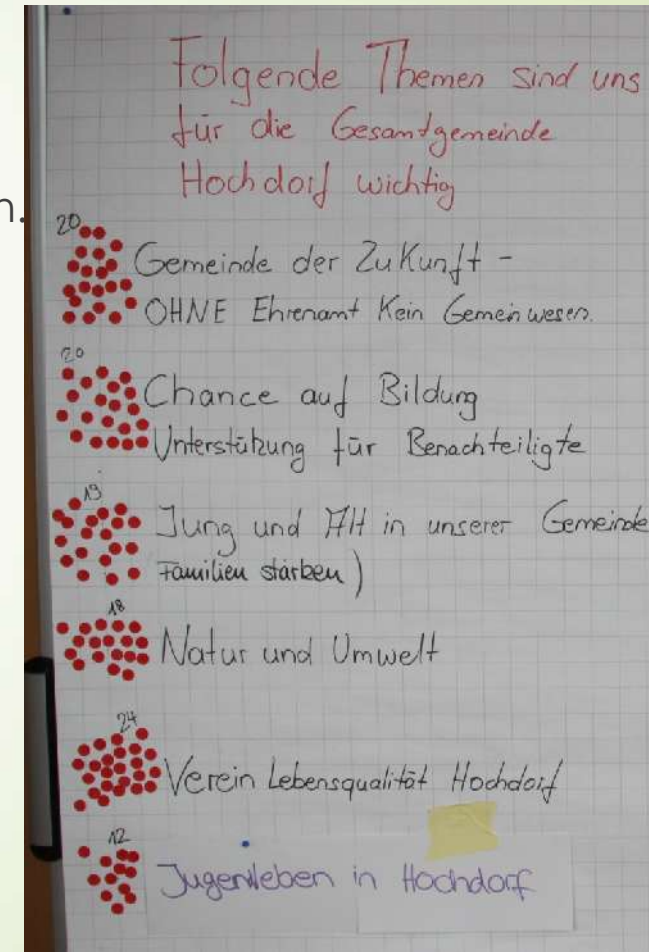 n.
Folgende Themen sind uns
für die Gesamtgemeinde
Hochdorf wichtig
20
Gemeinde der Zukunft -
OHNE Ehrenamt Kein Gemeinwesen.
20
Chance auf Bildung
Unterstützung für Benachteiligte
19
Jung und Alt in unserer Gemeinde
Familien stärken)
18
Natur und Umwelt
24
Verein Lebensqualität Hochdorf
12
Jugendleben in Hochdorf